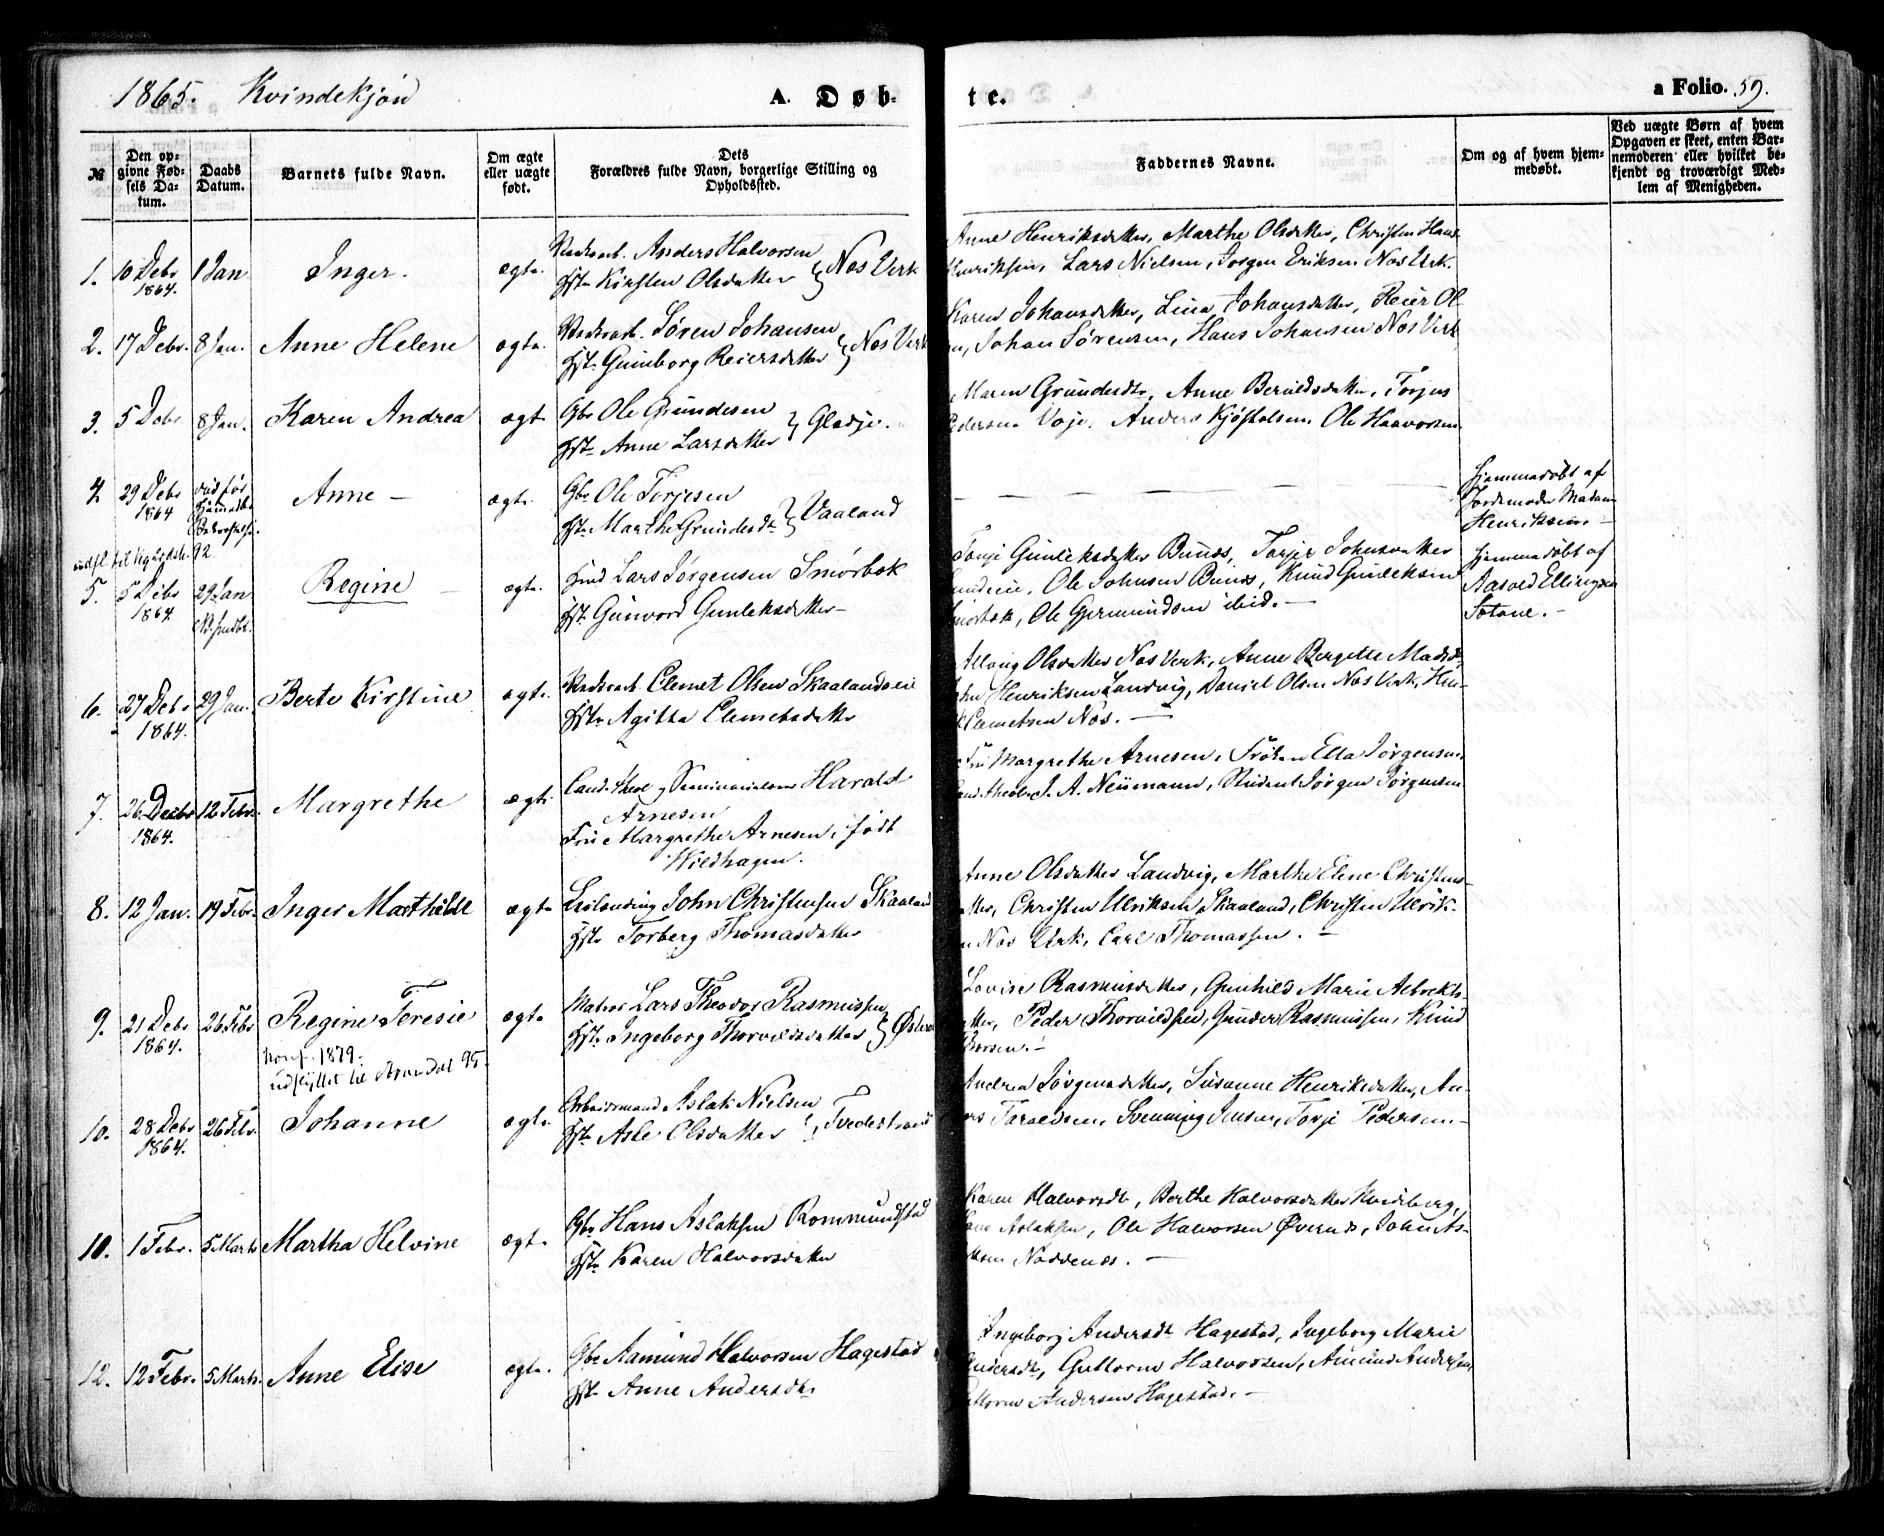 1865. Kvindekjøn
A. Døbte.
a Folio. 59.
№
Den opgivne Fødsels Datum.
Daabs Datum.
Barnets fulde Navn.
Om ægte eller uægte født.
Dets Forældres fulde Navn, borgerlige Stilling og Opholdssted.
Faddernes Navne.
Om og af hvem hjemmedøbt.
Ved uægte Børn af hvem Opgaven er skeet, enten Barnemoderen eller hvilket bekjendt og troværdigt Medlem af Menigheden.
1. 10 Debr 1864. 1 Jan Inger. ægte.
Anders Halvorsen
Kirsten Olsdatter } Nes Verk
Anne Henriksdatter, Marthe Olsdatter, Christen Hans
Henriksen, Lars Nielsen, Jørgen Eriksen Nes Verk.
2. 17 Debr. 8 Jan. Anne Helene ægte.
Søren Johansen
Gunborg Reiersdatter } Nes Verk
Karen Johansdatter, Lina Johansdatter, Reier Ol
Johan Sørensen, Hans Johansen Nes Verk
3. 5 Debr 8 Jan. Karen Andrea ægte
Gbr Ole Grundesen
Hst. Anne Larsdatter } Gladje.
Maren Grundesdtr, Anne Beruldsdatter, Torjus
Pedersen Voje, Anders Kjøstolsen, Ole Haavorsen
4. 29 Debr 1864 Anne – ægte.
Gbr Ole Torjesen
Hst. Marthe Grundesdt } Vaaland
Hjemmedøbt af
Jordemoder Madam
Henriksen. –
udfl. til 92
5. 5 Debr 1864 29 Jan Regine ægte.
Lars Jørgensen Smørbek
Hst. Gunvord Gunleksdatter –
Torje Gunleksdatter Bunes, Torjer Johnsdatter
Ole Johnsen Bunes, Knud Gunleksen
Ole Gjermundsen ibid. –
Hjemmedøbt af
Aasold Ellingsen
6. 27 Debr 1864. 29 Jan. Berte Kirstine ægte.
Clemet Olsen Skaalandseie
Agitha Clemetsdatter
Olsdatter Nes Verk, Anne Bergette Madsd,
Henriksen Landvig, Daniel Olsen Nes Verk, Hen-
Clemetsen Nes. –
7. 26 Decbr 1864. 12 Febr. Margrethe ægte.
Cand. theol. og Seminarielærer Harald
Arnesen
Fru Margrethe Arnesen, født
Wildhagen.
Fru Margrethe Arnesen, Frøken Ella Jørgensen,
Cand. theol. J. A. Neumann, Student Jørgen Jørgensen
8. 12 Jan. 19 Febr. Inger Mathilde ægte
John Christensen Skaaland
Hst. Torberg Thomasdatter
Anne Olsdatter Landvig, Marthe Elene Christens-
Christen Ulriksen Skaaland, Christen Ulrik-
Nes Verk, Carl Thomassen. –
9. 21 Debr 1864. 26 Febr Regine Teresie ægte
Konf. 1879.
udflyttet til Arendal 95
Matros Lars Theodor Rasmussen
Hst. Ingeborg Thorvildsdatter }
Lovise Rasmusdatter, Gunhild Marie Albrekts-
Peder Thorvildsen, Gunder Rasmussen, Knud
10. 28 Debr 1864. 26 Febr. Johanne ægte
Arbeidsmand Aslak Nielsen
Hst. Aste Olsdatter } Tvedestrand
Andrea Jørgensdatter, Susanne Henriksdatter, An
Taraldsen, Svenning Jensen, Torje Pedersen. –
10. 1 Febr. 5 Marts Martha Helvine ægte.
Gbr Hans Aslaksen Rommundstad
Hst. Karen Halvorsdatter
Karen Halvorsdt, Berthe Halvorsdatter Kveiberg,
Aslaksen, Ole Halvorsen Øvernes, John As-
Noddenes. –
12. 12 Febr. 5 Marts. Anne Elise ægte.
Gbr Aamund Halvorsen Hagestad
Hst. Anne Andersdtr
Ingeborg Andersdt Hagestad, Ingeborg Marie
Andersdt, Guttorm Halvorsen, Amund Andersen,
Guttorm Andersen Hagestad. –